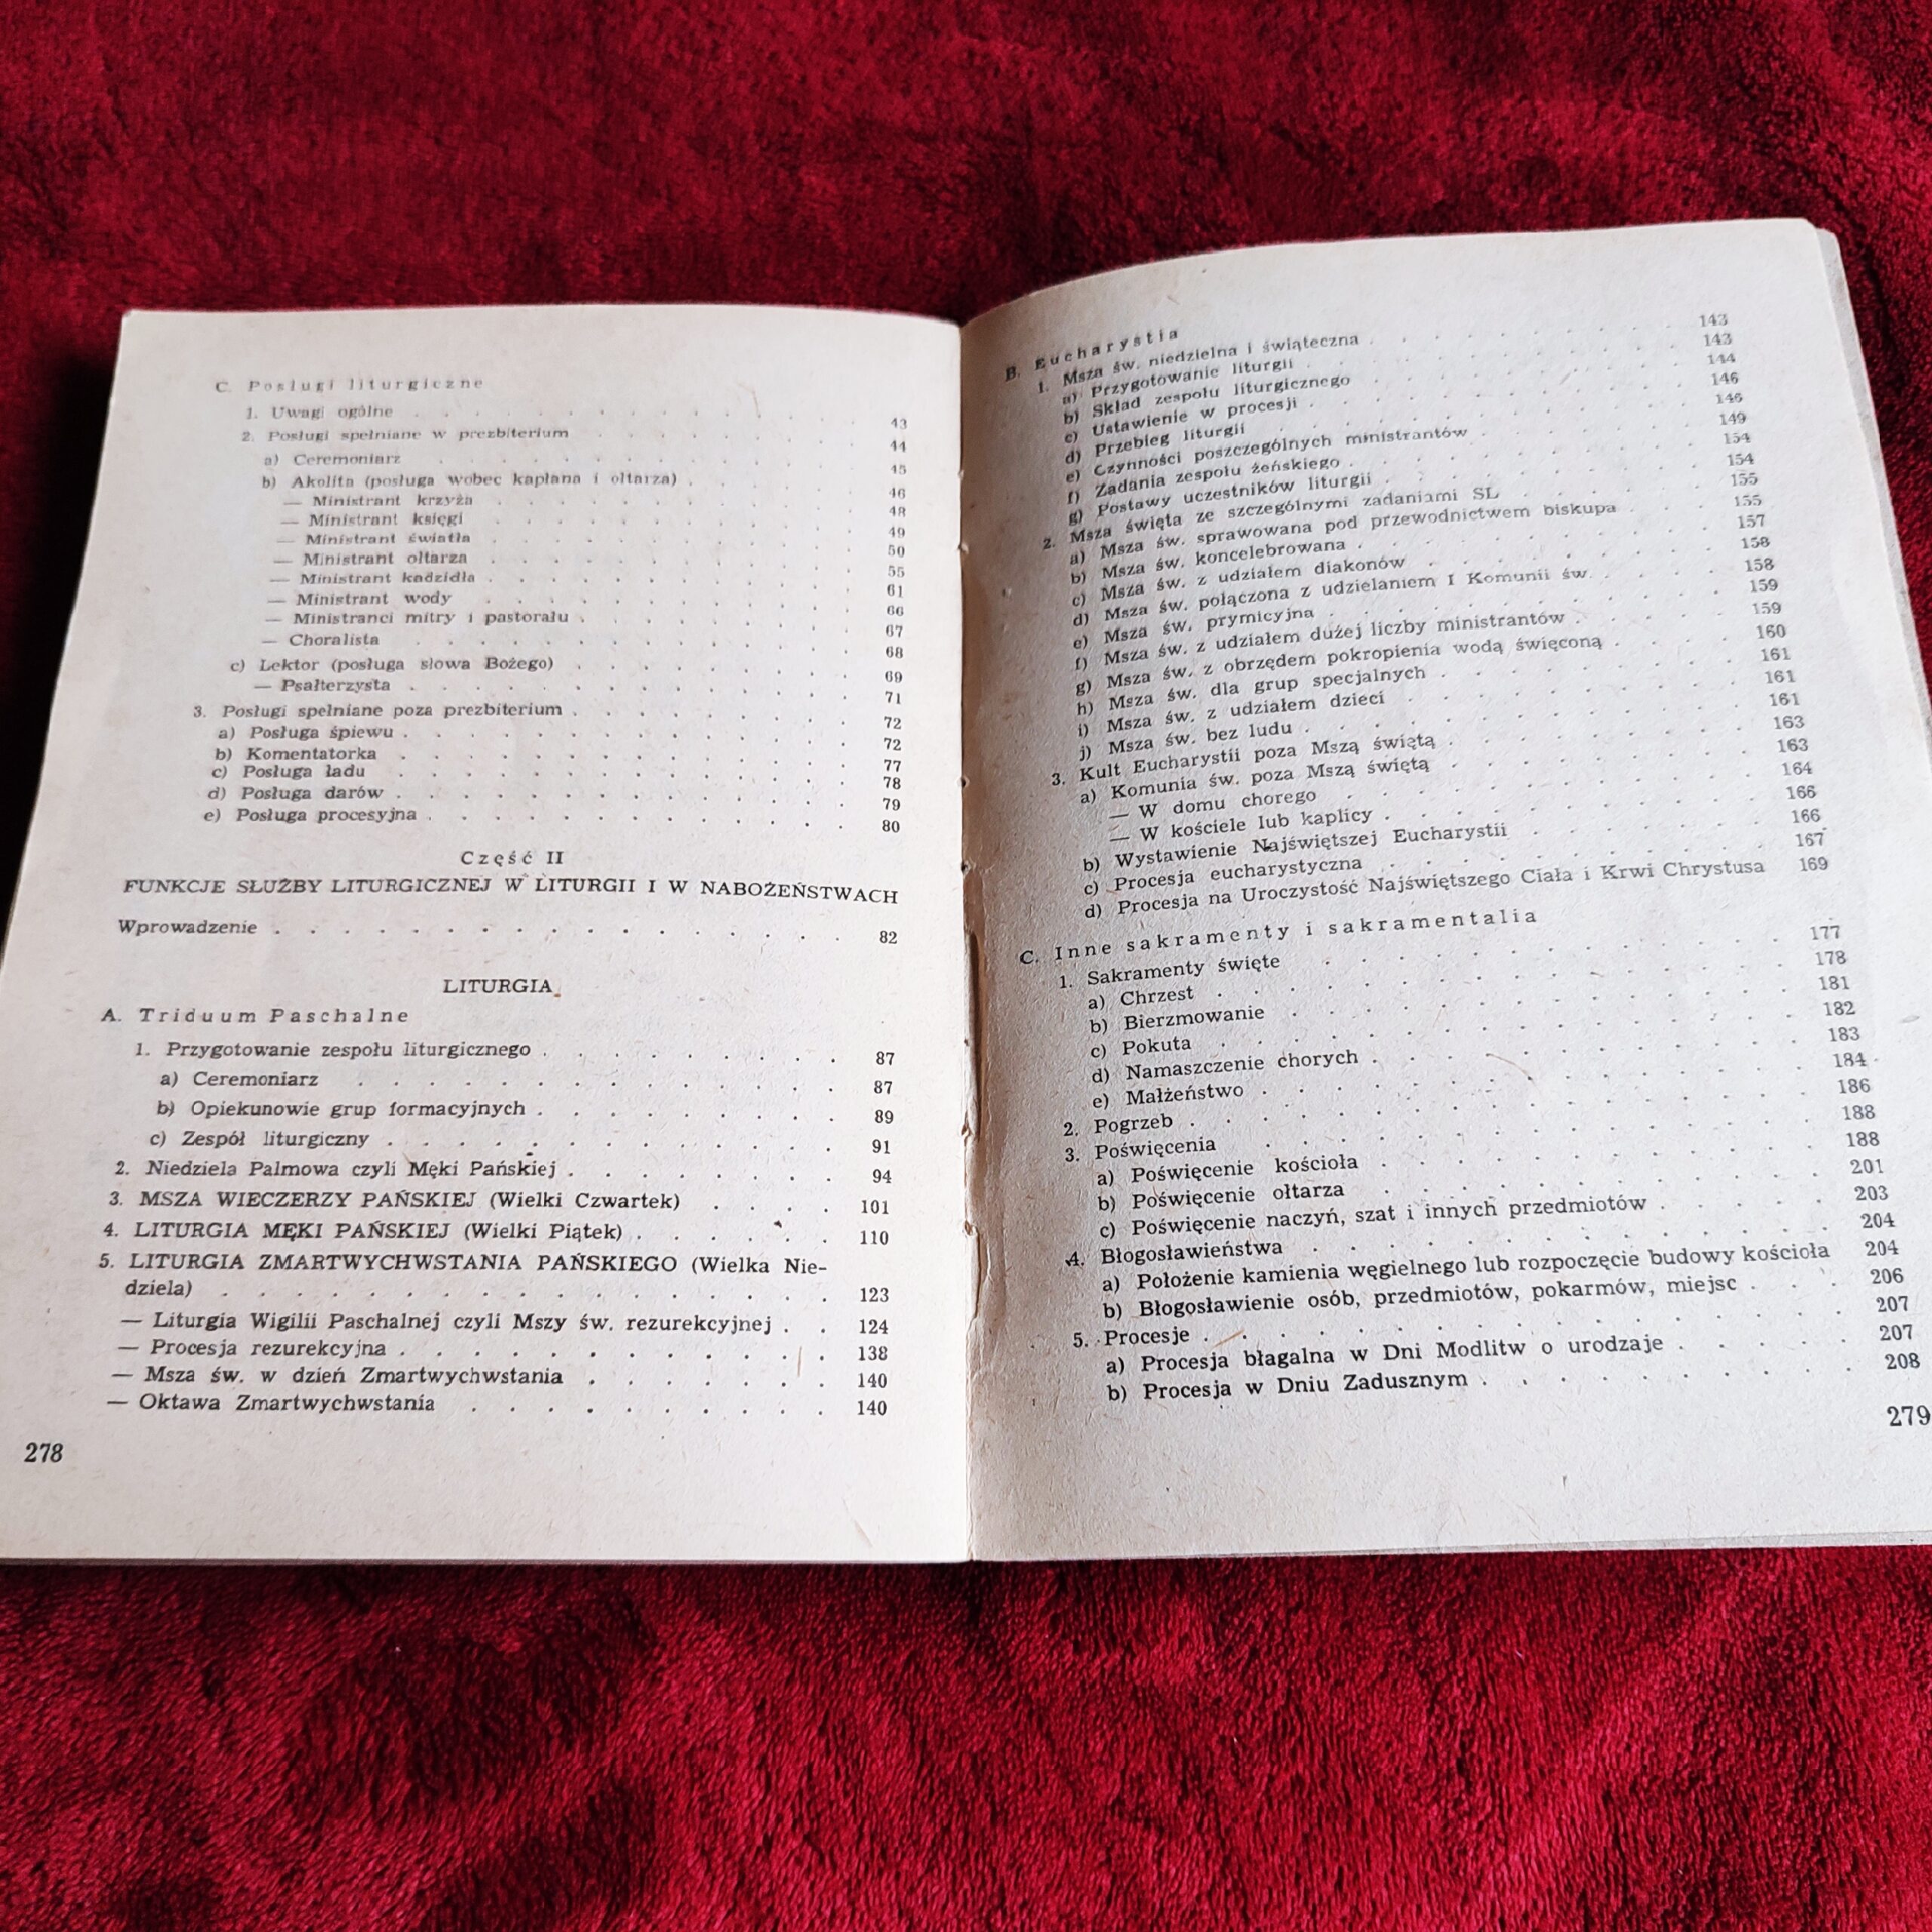 C. Posługi liturgiczne
1. Uwagi ogólne . . . 43
2. Posługi spełniane w prezbiterium . . . 44
a) Ceremoniarz . . . 45
b) Akolita (posługa wobec kapłana i ołtarza) . . . 46
— Ministrant krzyża . . . 48
— Ministrant księgi . . . 49
— Ministrant światła . . . 50
— Ministrant ołtarza . . . 55
— Ministrant kadzidła . . . 61
— Ministrant wody . . . 66
— Ministranci mitry i pastorału . . . 67
— Choralista . . . 68
c) Lektor (posługa słowa Bożego) . . . 69
— Psałterzysta . . . 71
3. Posługi spełniane poza prezbiterium . . . 72
a) Posługa śpiewu . . . 72
b) Komentatorka . . . 77
c) Posługa ładu . . . 78
d) Posługa darów . . . 79
e) Posługa procesyjna . . . 80
Część II
FUNKCJE SŁUŻBY LITURGICZNEJ W LITURGII I W NABOŻEŃSTWACH
Wprowadzenie . . . 82
LITURGIA
A. Triduum Paschalne
1. Przygotowanie zespołu liturgicznego . . . 87
a) Ceremoniarz . . . 87
b) Opiekunowie grup formacyjnych . . . 89
c) Zespół liturgiczny . . . 91
2. Niedziela Palmowa czyli Męki Pańskiej . . . 94
3. MSZA WIECZERZY PAŃSKIEJ (Wielki Czwartek) . . . 101
4. LITURGIA MĘKI PAŃSKIEJ (Wielki Piątek) . . . 110
5. LITURGIA ZMARTWYCHWSTANIA PAŃSKIEGO (Wielka Nie-
dziela) . . . 123
— Liturgia Wigilii Paschalnej czyli Mszy św. rezurekcyjnej . . 124
— Procesja rezurekcyjna . . . 138
— Msza św. w dzień Zmartwychwstania . . . 140
— Oktawa Zmartwychwstania . . . 140
278
B. Eucharystia . . . 143
1. Msza św. niedzielna i świąteczna . . . 143
a) Przygotowanie liturgii . . . 144
b) Skład zespołu liturgicznego . . . 146
c) Ustawienie w procesji . . . 146
d) Przebieg liturgii . . . 149
e) Czynności poszczególnych ministrantów . . . 154
f) Zadania zespołu żeńskiego . . . 154
g) Postawy uczestników liturgii . . . 155
2. Msza święta ze szczególnymi zadaniami SL . . . 155
a) Msza św. sprawowana pod przewodnictwem biskupa . . . 157
b) Msza św. koncelebrowana . . . 158
c) Msza św. z udziałem diakonów . . . 158
d) Msza św. połączona z udzielaniem I Komunii św. . . . 159
e) Msza św. prymicyjna . . . 159
f) Msza św. z udziałem dużej liczby ministrantów . . . 160
g) Msza św. z obrzędem pokropienia wodą święconą . . . 161
h) Msza św. dla grup specjalnych . . . 161
i) Msza św. z udziałem dzieci . . . 161
j) Msza św. bez ludu . . . 163
3. Kult Eucharystii poza Mszą świętą . . . 163
a) Komunia św. poza Mszą świętą . . . 164
— W domu chorego . . . 166
— W kościele lub kaplicy . . . 166
b) Wystawienie Najświętszej Eucharystii . . . 167
c) Procesja eucharystyczna . . .
d) Procesja na Uroczystość Najświętszego Ciała i Krwi Chrystusa 169
C. Inne sakramenty i sakramentalia . . . 177
1. Sakramenty święte . . . 178
a) Chrzest . . . 181
b) Bierzmowanie . . . 182
c) Pokuta . . . 183
d) Namaszczenie chorych . . . 184
e) Małżeństwo . . . 186
2. Pogrzeb . . . 188
3. Poświęcenia . . . 188
a) Poświęcenie kościoła . . . 201
b) Poświęcenie ołtarza . . . 203
c) Poświęcenie naczyń, szat i innych przedmiotów . . . 204
4. Błogosławieństwa . . .
a) Położenie kamienia węgielnego lub rozpoczęcie budowy kościoła 204
b) Błogosławienie osób, przedmiotów, pokarmów, miejsc . . . 206
5. Procesje . . . 207
a) Procesja błagalna w Dni Modlitw o urodzaje . . . 207
b) Procesja w Dniu Zadusznym . . . 208
279